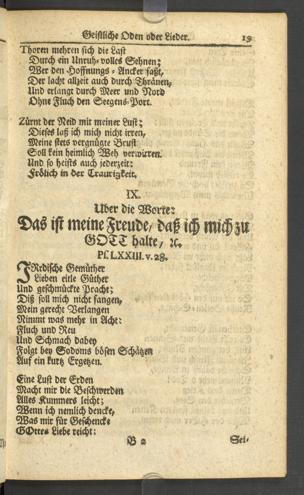 Geistliche Oden oder Lieder. 19
Thoren mehren sich die Last
Durch ein Unruh-volles Sehnen;
Wer den Hoffnungs-Ancker faßt,
Der lacht allzeit auch durch Thränen,
Und erlangt durch Meer und Nord
Ohne Fluch den Seegens-Port.
Zürnt der Neid mit meiner Lust;
Dieses laß ich mich nicht irren,
Meine stets vergnügte Brust
Soll kein heimlich Weh verwirren.
Und so heists auch jederzeit:
Frölich in der Traurigkeit.
IX.
Uber die Worte:
Das ist meine Freude, daß ich mich zu
GOTT halte, ꝛc.
Ps. LXXIII. v. 28.
IRrdische Gemüther
Lieben eitle Güther
Und geschmückte Pracht;
Diß soll mich nicht fangen,
Mein gerecht Verlangen
Nimmt was mehr in Acht:
Fluch und Reu
Und Schmach dabey
Folgt bey Sodoms bösen Schätzen
Auf ein kurtz Ergetzen.
Eine Lust der Erden
Macht mir die Beschwerden
Alles Kummers leicht;
Wenn ich nemlich dencke,
Was mir für Geschencke
GOttes Liebe reicht:
B 2 Sei-